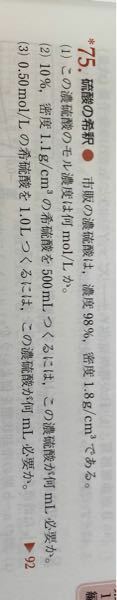 *75. 硫酸の希釈● 市販の濃硫酸は，濃度98％，密度1.8g/cm³である。
(1) この濃硫酸のモル濃度は何mol/Lか。
(2) 10％，密度1.1g/cm³の希硫酸を500mLつくるには，この濃硫酸が何mL必要か。
(3) 0.50mol/Lの希硫酸を1.0Lつくるには，この濃硫酸が何mL必要か。 ▶92
1
編